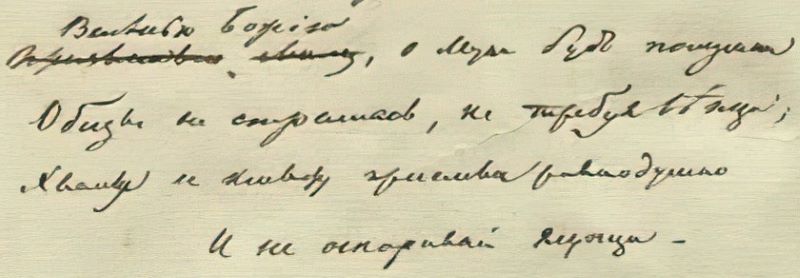 Веленью Божію
Призванью своему, о Муза будь послушна
Обиды не страшась, не требуя вѣнца;
Хвалу и клевету приемли равнодушно
И не оспоривай глупца –